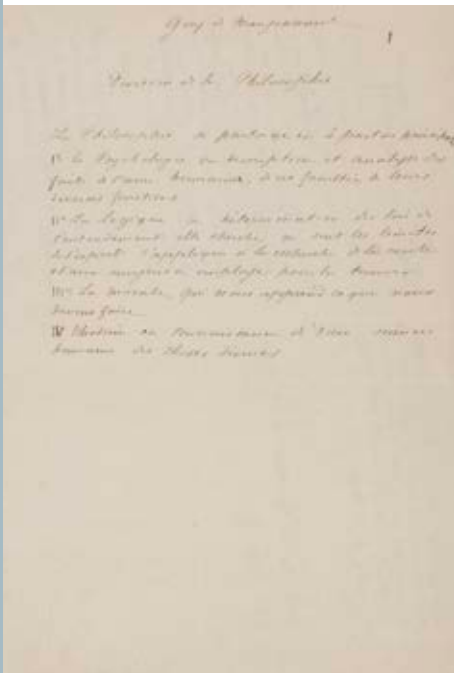 Guy de Maupassant
1
Division de la Philosophie
La Philosophie se partage en 4 parties
Iº la Psychologie ou description et analyse des
faits de l'ame humaine, de ses facultés de leurs
fonctions
IIº La Logique ou détermination des lois de
l'entendement elle cherche les limites
de l'esprit l'applique à la recherche de la vérité
pour la trouver
IIIº La morale, qui nous apprend ce que nous
devons faire
IV ou connaissance de Dieu science
humaine des choses divines